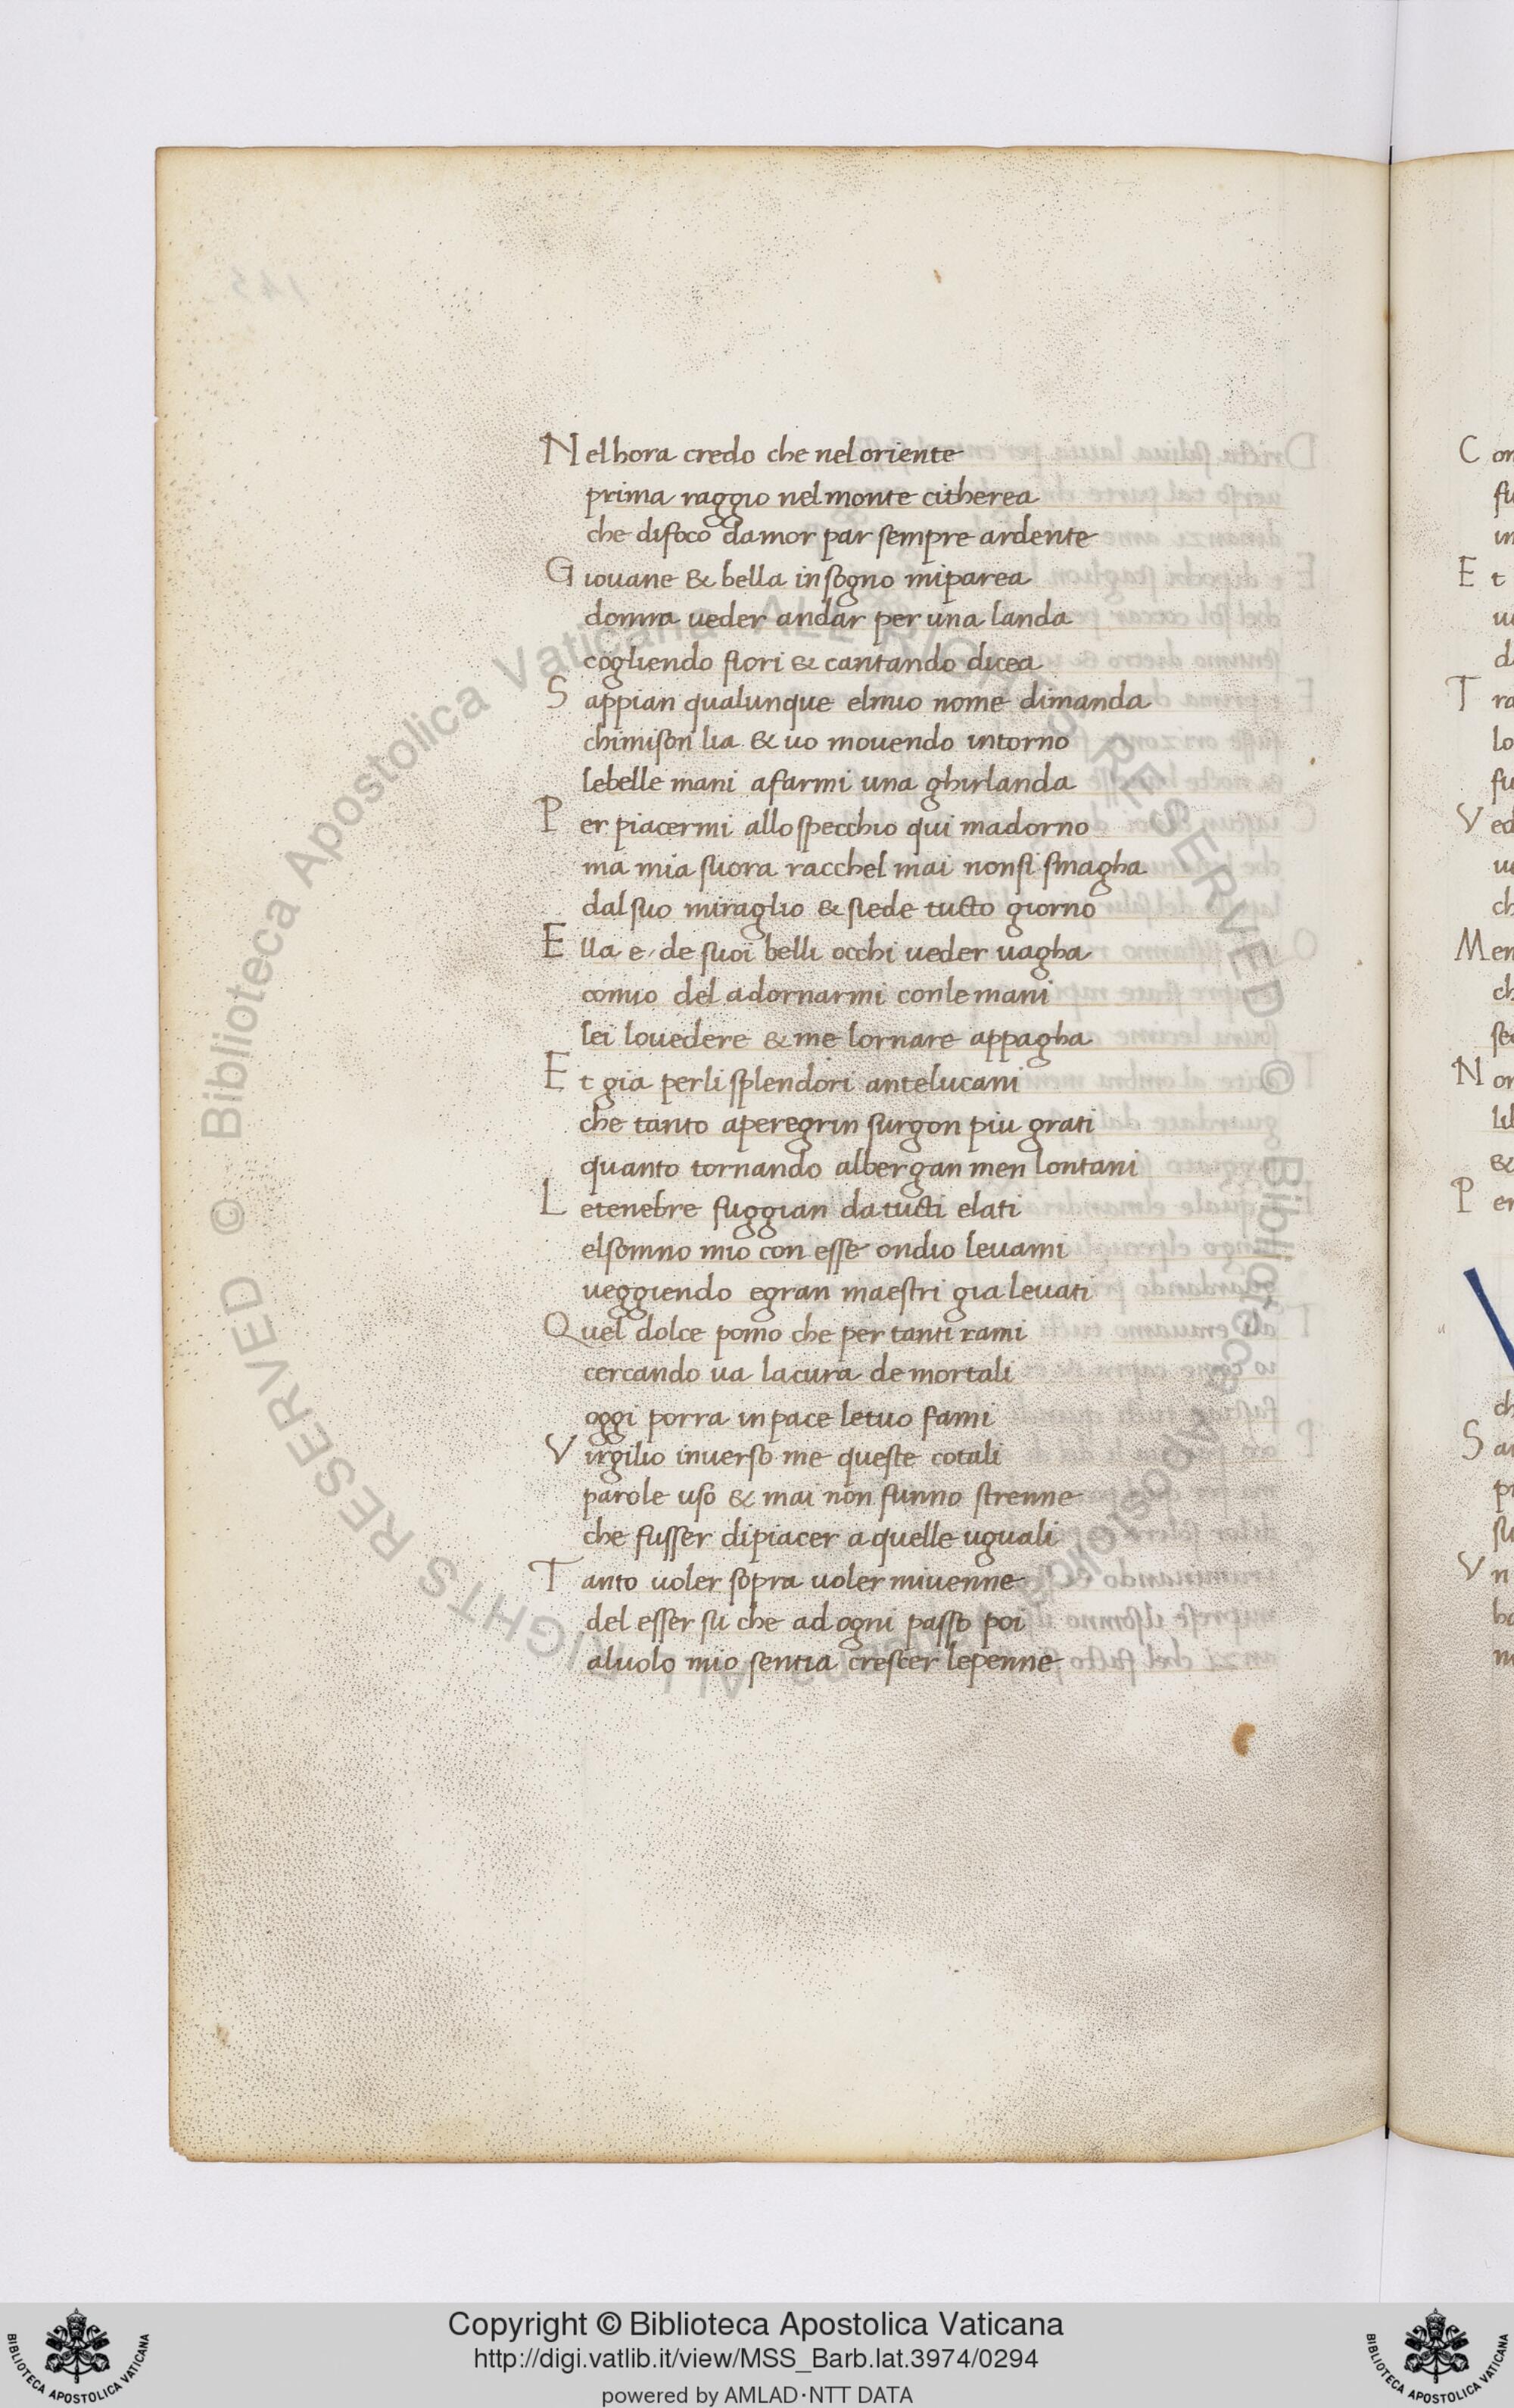 Nelhora credo che nel oriente
prima raggio nel monte citherea
che difoco damor par sempre ardente
Giouane & bella insogno miparea
donna ueder andar per una landa
cogliendo fiori & cantando dicea
Sappian qualunque elmio nome dimanda
chimison lia & uo mouendo intorno
lebelle mani afarmi una ghirlanda
Per piacermi allospecchio qui madorno
ma mia suora racchel mai nonsi smagha
dalsuo miraglio & siede tucto giorno
Ella e de suoi belli occhi ueder uagha
comio del adornarmi conlemani
lei louedere & me lornare appagha
Et gia perli splendori antelucani
che tanto aperegrin surgon piu grati
quanto tornando albergan men lontani
Letenebre fuggian datucti elati
elsomno mio con esse ondio leuami
ueggiendo egran maestri gia leuati
Quel dolce pomo che per tanti rami
cercando ua lacura de mortali
oggi porra inpace letuo fami
Virgilio inuerso me queste cotali
parole uso & mai non funno strenne
che fusser dipiacer aquelle uguali
Tanto uoler sopra uoler miuenne
del esser su che ad ogni passo poi
aluolo mio sentia crescer lepenne
Copyright © Biblioteca Apostolica Vaticana
http://digi.vatlib.it/view/MSS_Barb.lat.3974/0294
powered by AMLAD·NTT DATA